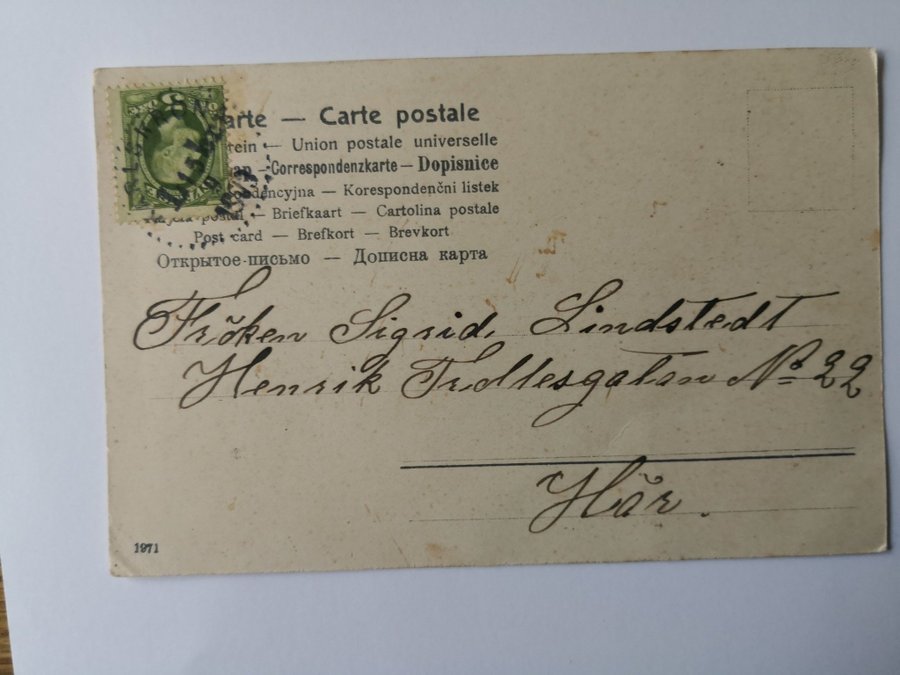 arte — Carte postale
tein — Union postale universelle
Correspondenzkarte — Dopisnice
dencyjna — Korespondenční listek
postal — Briefkaart — Cartolina postale
Post card — Brefkort — Brevkort
Открытое-письмо — Дописна карта
Fröken Sigrid Lindstedt
Henrik gatan No 22
Här.
1971